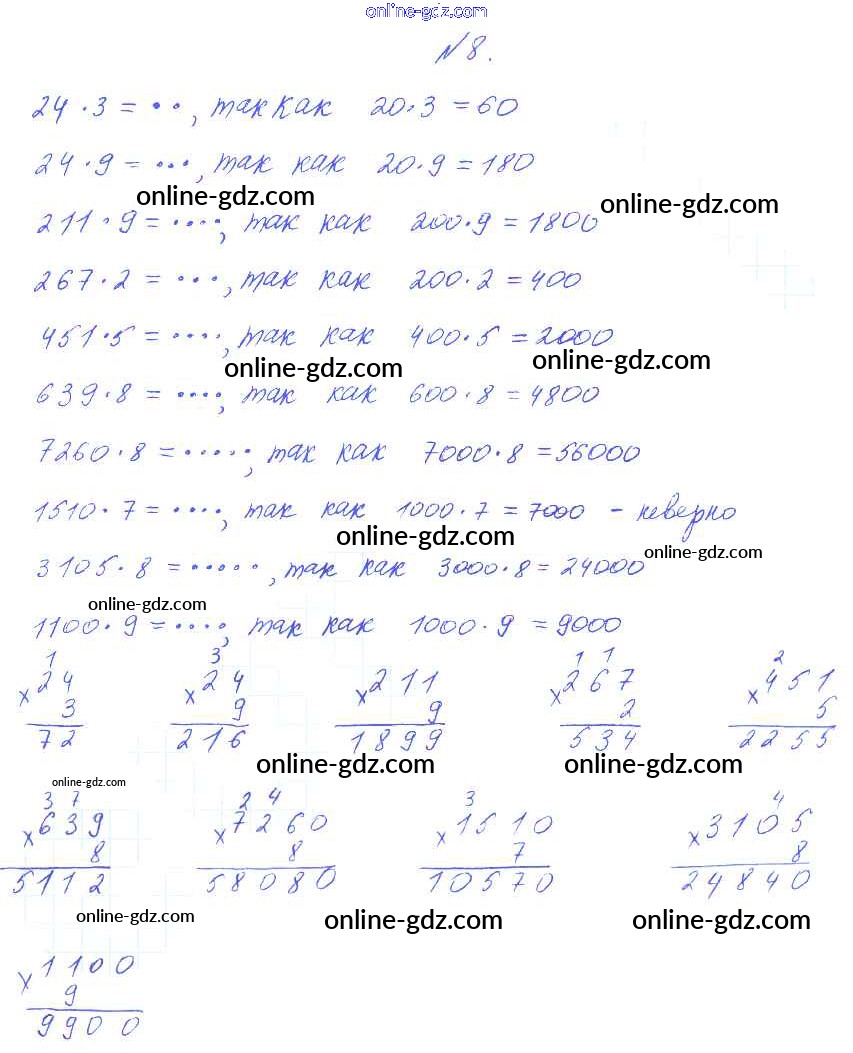 online-gdz.com
№8.
24·3 = ··, так как 20·3 = 60
24·9 = ···, так как 20·9 = 180
online-gdz.com
online-gdz.com
211·9 = ····, так как 200·9 = 1800
267·2 = ···, так как 200·2 = 400
451·5 = ····, так как 400·5 = 2000
online-gdz.com
online-gdz.com
639·8 = ····, так как 600·8 = 4800
7260·8 = ·····, так как 7000·8 = 56000
1510·7 = ····, так как 1000·7 = 7000 - неверно
online-gdz.com
online-gdz.com
3105·8 = ·····, так как 3000·8 = 24000
online-gdz.com
1100·9 = ····, так как 1000·9 = 9000
1 3 1 1 2
×24 ×24 ×211 ×267 ×451
3 9 9 2 5
72 216 1899 534 2255
online-gdz.com online-gdz.com
online-gdz.com
3 7 2 4 3 4
×639 ×7260 ×1510 ×3105
8 8 7 8
5112 58080 10570 24840
online-gdz.com online-gdz.com online-gdz.com
×1100
9
9900